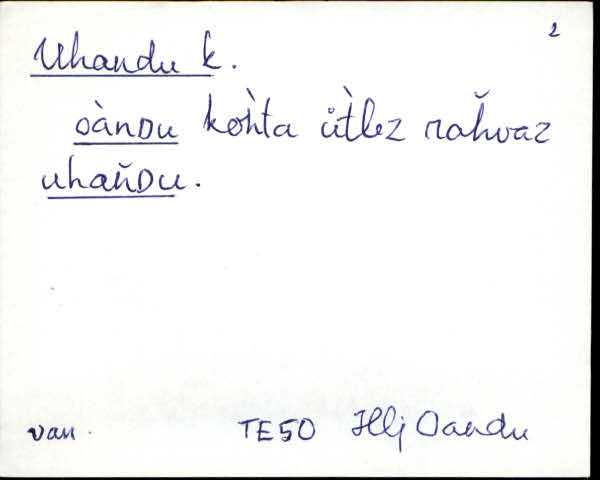 2
Uhandu k.
oànDu koh̀ta üt̀lez rah̆vaz
uhaň̆Du.
van. TE50 Hlj Oandu